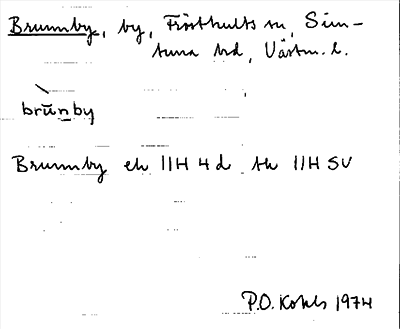 Brunnby, by, Frösthults sn, Sim-
tuna hd, Västm. l.
brùnby
Brunnby ek 11H 4d tk 11H SV
P.O. Kohls 1974